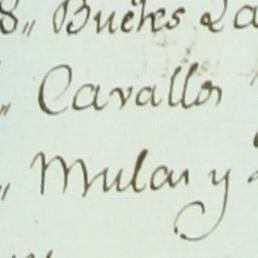 8,, Bueyes
,, Cavallos
,, Mulas y